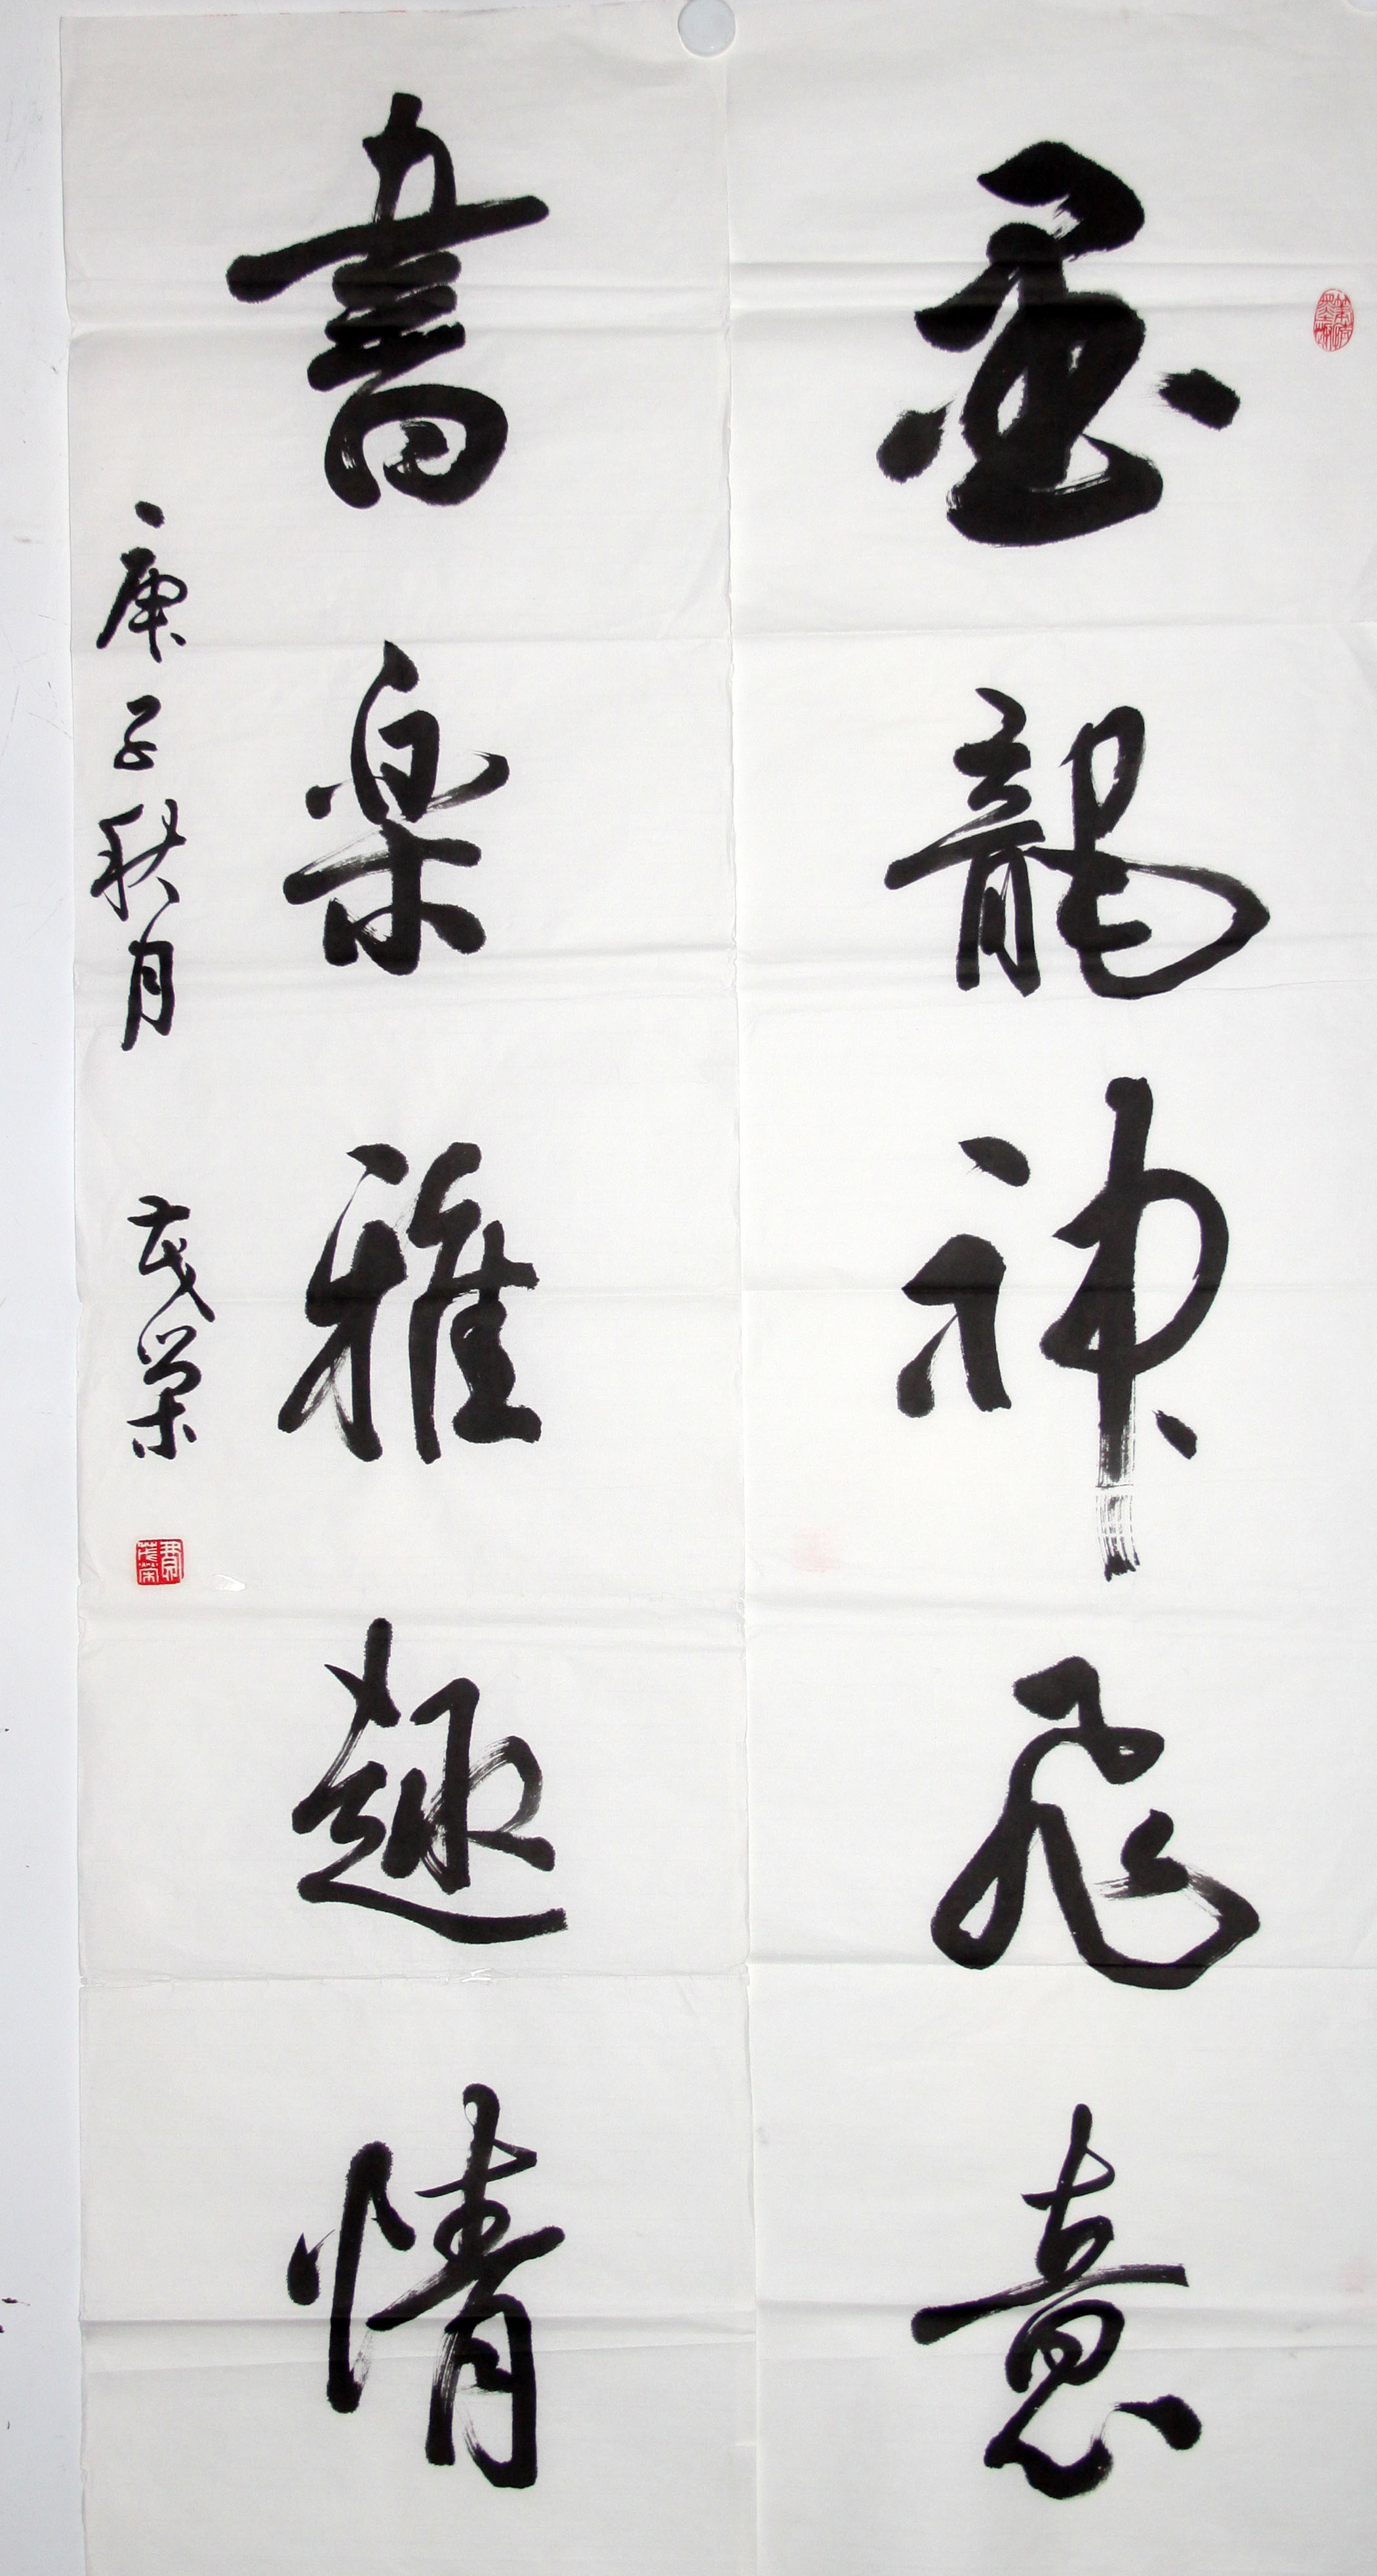 墨龍神飛意
書樂雅趣情
庚子秋月 茂榮